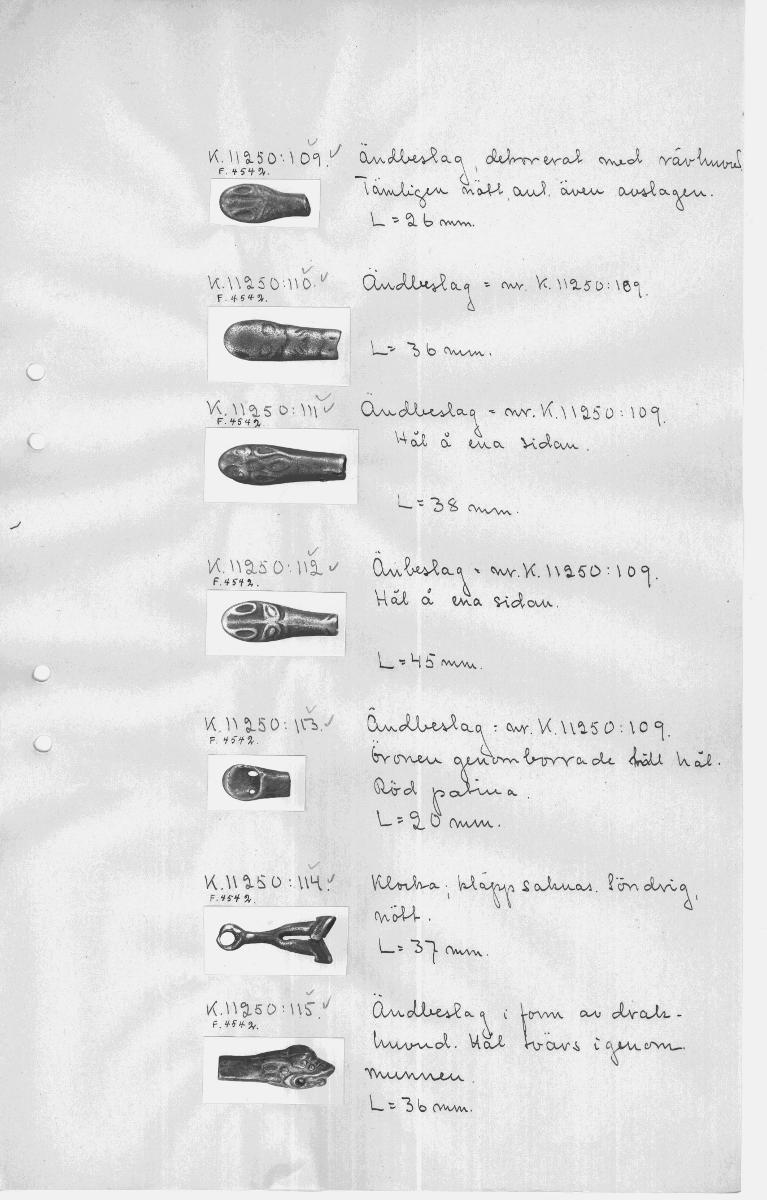 K.11250:109. Ändbeslag, dekorerat med rävhuvud
F.4542. Tämligen nött, ant. även avslagen.
L = 26 mm.
K.11250:110. Ändbeslag = nr. K.11250:109.
F.4542.
L = 36 mm.
K.11250:111 Ändbeslag = nr. K.11250:109.
F.4542. Hål å ena sidan.
L = 38 mm.
K.11250:112 Änbeslag = nr. K.11250:109.
F.4542. Hål å ena sidan.
L = 45 mm.
K.11250:113. Ändbeslag = nr. K.11250:109.
F.4542. Öronen genomborrade hål.
Röd patina.
L = 20 mm.
K.11250:114. Klocka, kläpp saknas. Söndrig,
F.4542. nött.
L = 37 mm.
K.11250:115. Ändbeslag i form av drak-
F.4542. huvud. Hål tvärs igenom
munnen.
L = 36 mm.